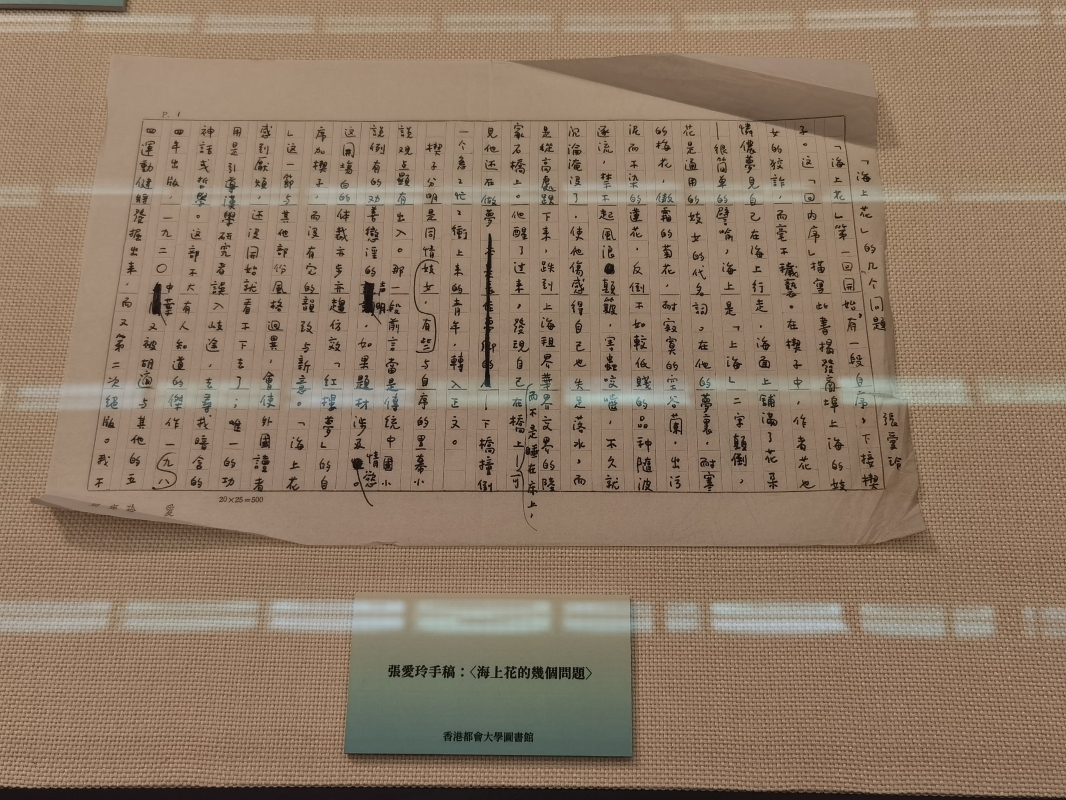 「海上花」的几个問題
張愛玲
「海上花」第一回開始,有一段自序,下接楔
子。这「回内序」描寫此書揭發商埠上海的妓
女的狡詐,而毫不穢褻。在楔子中,作者花也
憐儂夢見自己在海上行走,海面上鋪滿了花朵
—很簡單的譬喻,海上是「上海」二字顛倒,
花是通用的妓女的代名詞。在他的夢裏,耐寒
的梅花,傲霜的菊花,耐寂寞的空谷蘭,出污
泥而不染的蓮花,反倒不如較低賤的品种隨波
逐流,禁不起風浪顛簸,害蟲咬嚙,不久就
沉淪淹沒了,使他傷感得自己也失足落水,而
是從高處跌下來,跌到上海租界華界交界的陸
家石橋上。他醒了过來,發現自己在橋上—可
而不是睡在床上,
見他还在做夢—下橋撞倒
一个急々忙々衝上来的青年,轉入正文。
楔子分明是同情妓女,有些与自序的黑幕小
説观点顯有出入。那一段前言當是傳統中國小
説例有的勸善懲淫的聲明,如果題材涉及情慾。
這開場白的体裁亦步亦趨仿效「紅樓夢」的自
序加楔子,而沒有它的韻致与新意。「海上花
」这一節与其他部份風格迥異,會使外國讀者
感到厭煩,还沒開始就看不下去了;唯一的功
用是引導漢學研究者誤入歧途,去尋找暗含的
神話或哲學。这部不大有人知道的傑作一九八
四年出版,一九二〇中葉又被胡適与其他的五
四運動健將發掘出来,而又第二次絕版。我不
P. 1
20×25=500
張愛玲手稿:〈海上花的幾個問題〉
香港都會大學圖書館